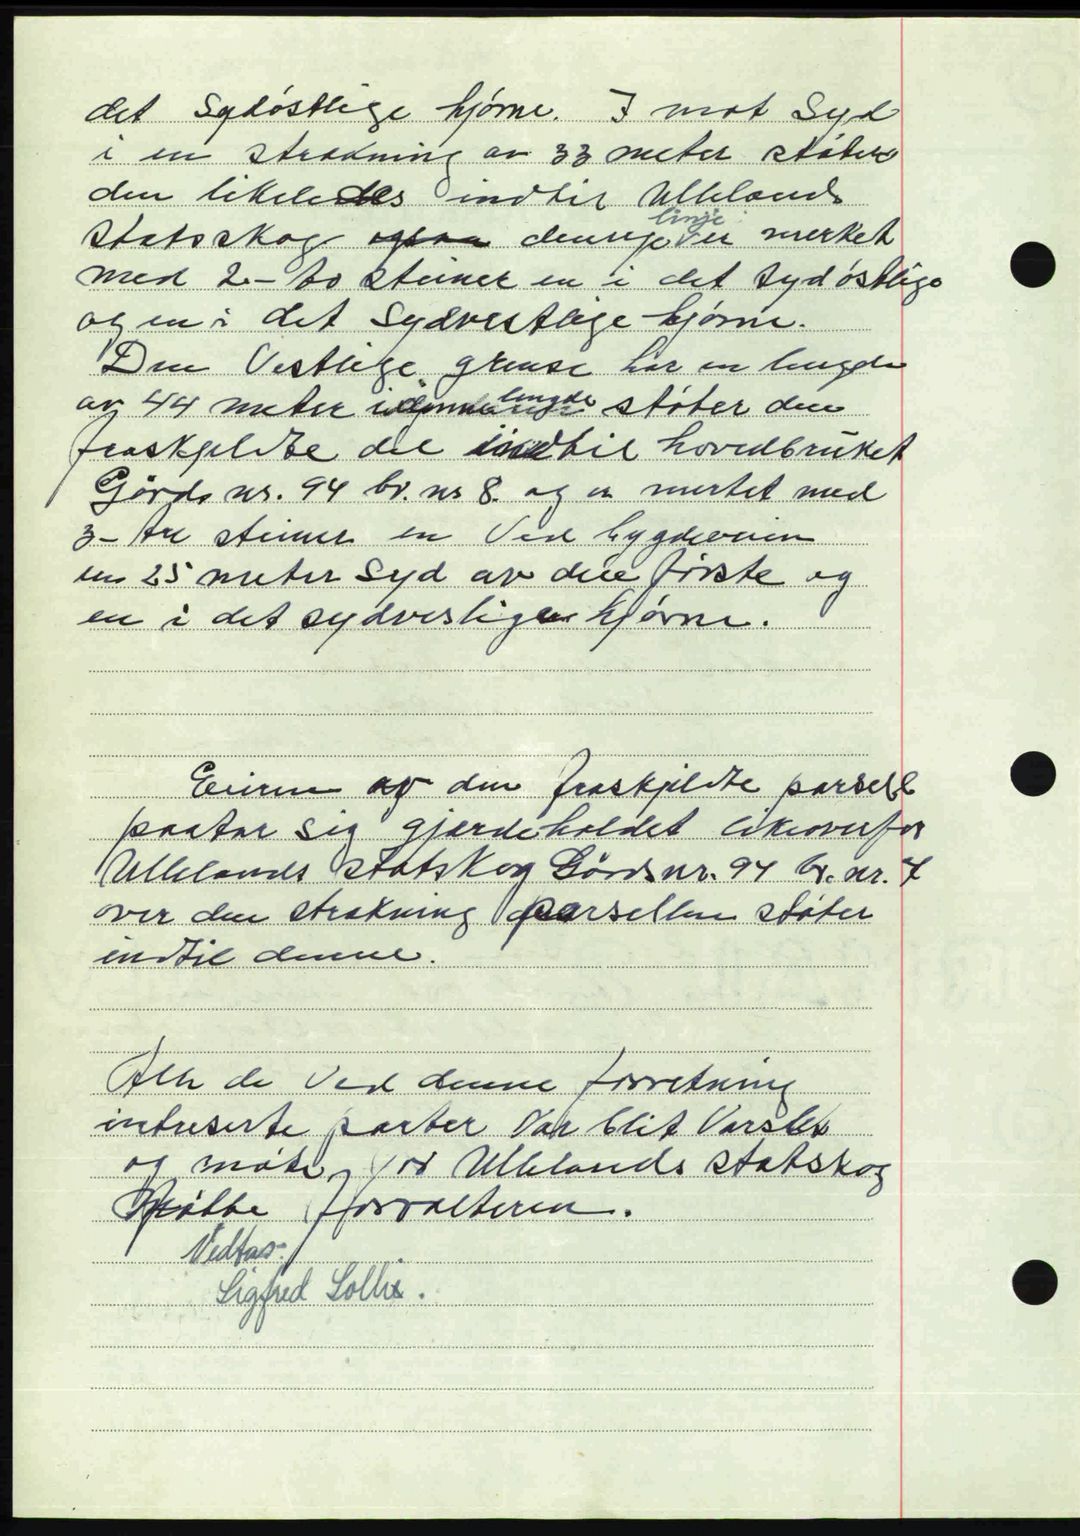 det Sydöstlige hjörne. I mot Syd
i en strækning av 33 meter støter
den likeledes indtil Ullelands
Statsskog denne linje er merket
med 2 - to steiner en i det Sydöstlige
og en i det Sydvestlige hjörne.
Den Vestlige grense har en lengde
av 44 meter i lengde støter den
fraskjeldte del indtil hovedbruket
Gårds nr. 94 br. nr 8. og er merket med
3 - tre steiner en Ved bygdeveien
en 25 meter Syd av den förste og
en i det sydvestligen hjörne.
Eieren av den fraskjeldte parsell
paatar sig gjærdeholdet likeoverfor
Ullelands Statskog Gårds nr. 94 br. nr. 7
over den strækning parsellen støter
indtil denne.
Alle de Ved denne forretning
intreserte parter Var blit Varslet
og møtte, for Ullelands Statskog
møtte forvalteren.
Vedtas:
Sigfred Sollie.